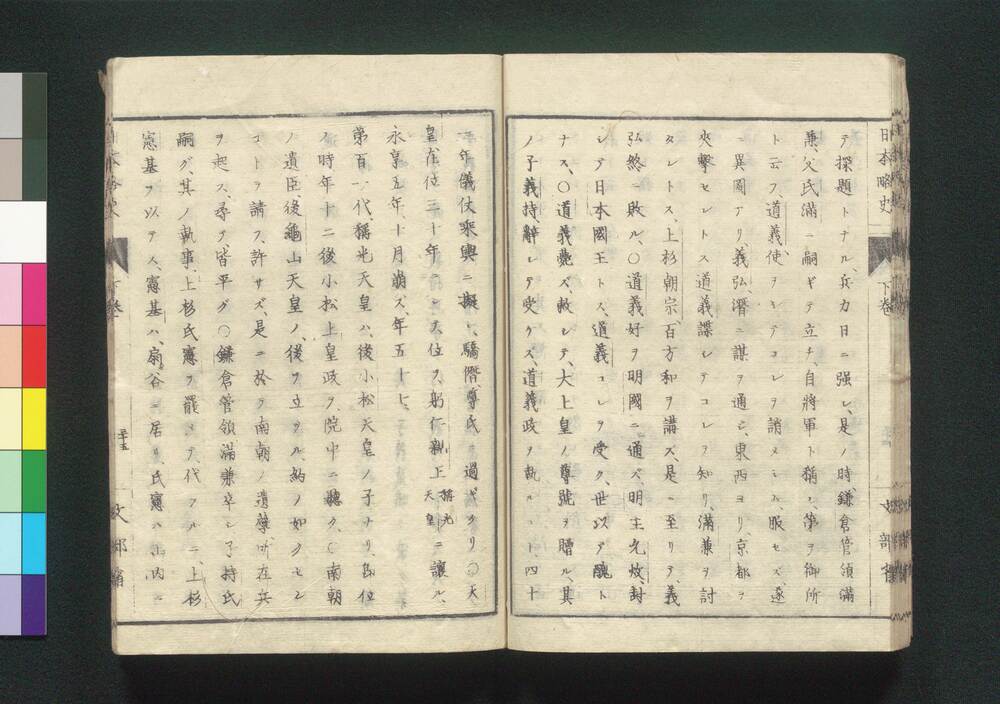 日本略史 下卷 文部省
テ探題トナル、兵力日ニ強シ、是ノ時、鎌倉管領滿
兼、父氏滿ニ嗣ギテ立チ、自將軍ト稱シ、第ヲ御所
ト云フ、道義、使ヲシテコレヲ誚メシム、服セズ、遂
ニ異圖アリ、義弘、潛ニ謀ヲ通ジ、東西ヨリ、京都ヲ
夾擊セントス、道義諜シテコレヲ知リ、滿兼ヲ討
タントス、上杉朝宗、百方和ヲ講ズ、是ニ至リテ、義
弘終ニ敗ル、〇道義好ヲ明國ニ通ズ、明主允炆、封
シテ日本國王トス、道義コレヲ受ク、世以テ醜ト
ナス、〇道義薨ズ、敕シテ、大上皇ノ尊號ヲ贈ル、其
ノ子義持、辭シテ受ケズ、道義政ヲ執ルコト、四十
一年、儀仗乘輿ニ擬シ、驕僭、尊氏ニ過ギタリ、〇天
皇在位三十年ニシテ、位ヲ、躬仁親王 稱光天皇 ニ讓ル、
永享五年、十月崩ズ、年五十七、
第百一代、稱光天皇ハ、後小松天皇ノ子ナリ、即位
ノ時年十二、後小松上皇政ヲ、院中ニ聽ク、〇南朝
ノ遺臣、後龜山天皇ノ、後ヲ立ツル、約ノ如クセン
コトヲ請フ、許サズ、是ニ於テ南朝ノ遺孽、所在兵
ヲ起ス、尋デ皆平グ、〇鎌倉管領滿兼卒シ、子、持氏
嗣グ、其ノ執事、上杉氏憲ヲ罷メテ、代フルニ、上杉
憲基ヲ以テス、憲基ハ、扇谷ニ居リ、氏憲ハ、山內ニ
三十五 文部省